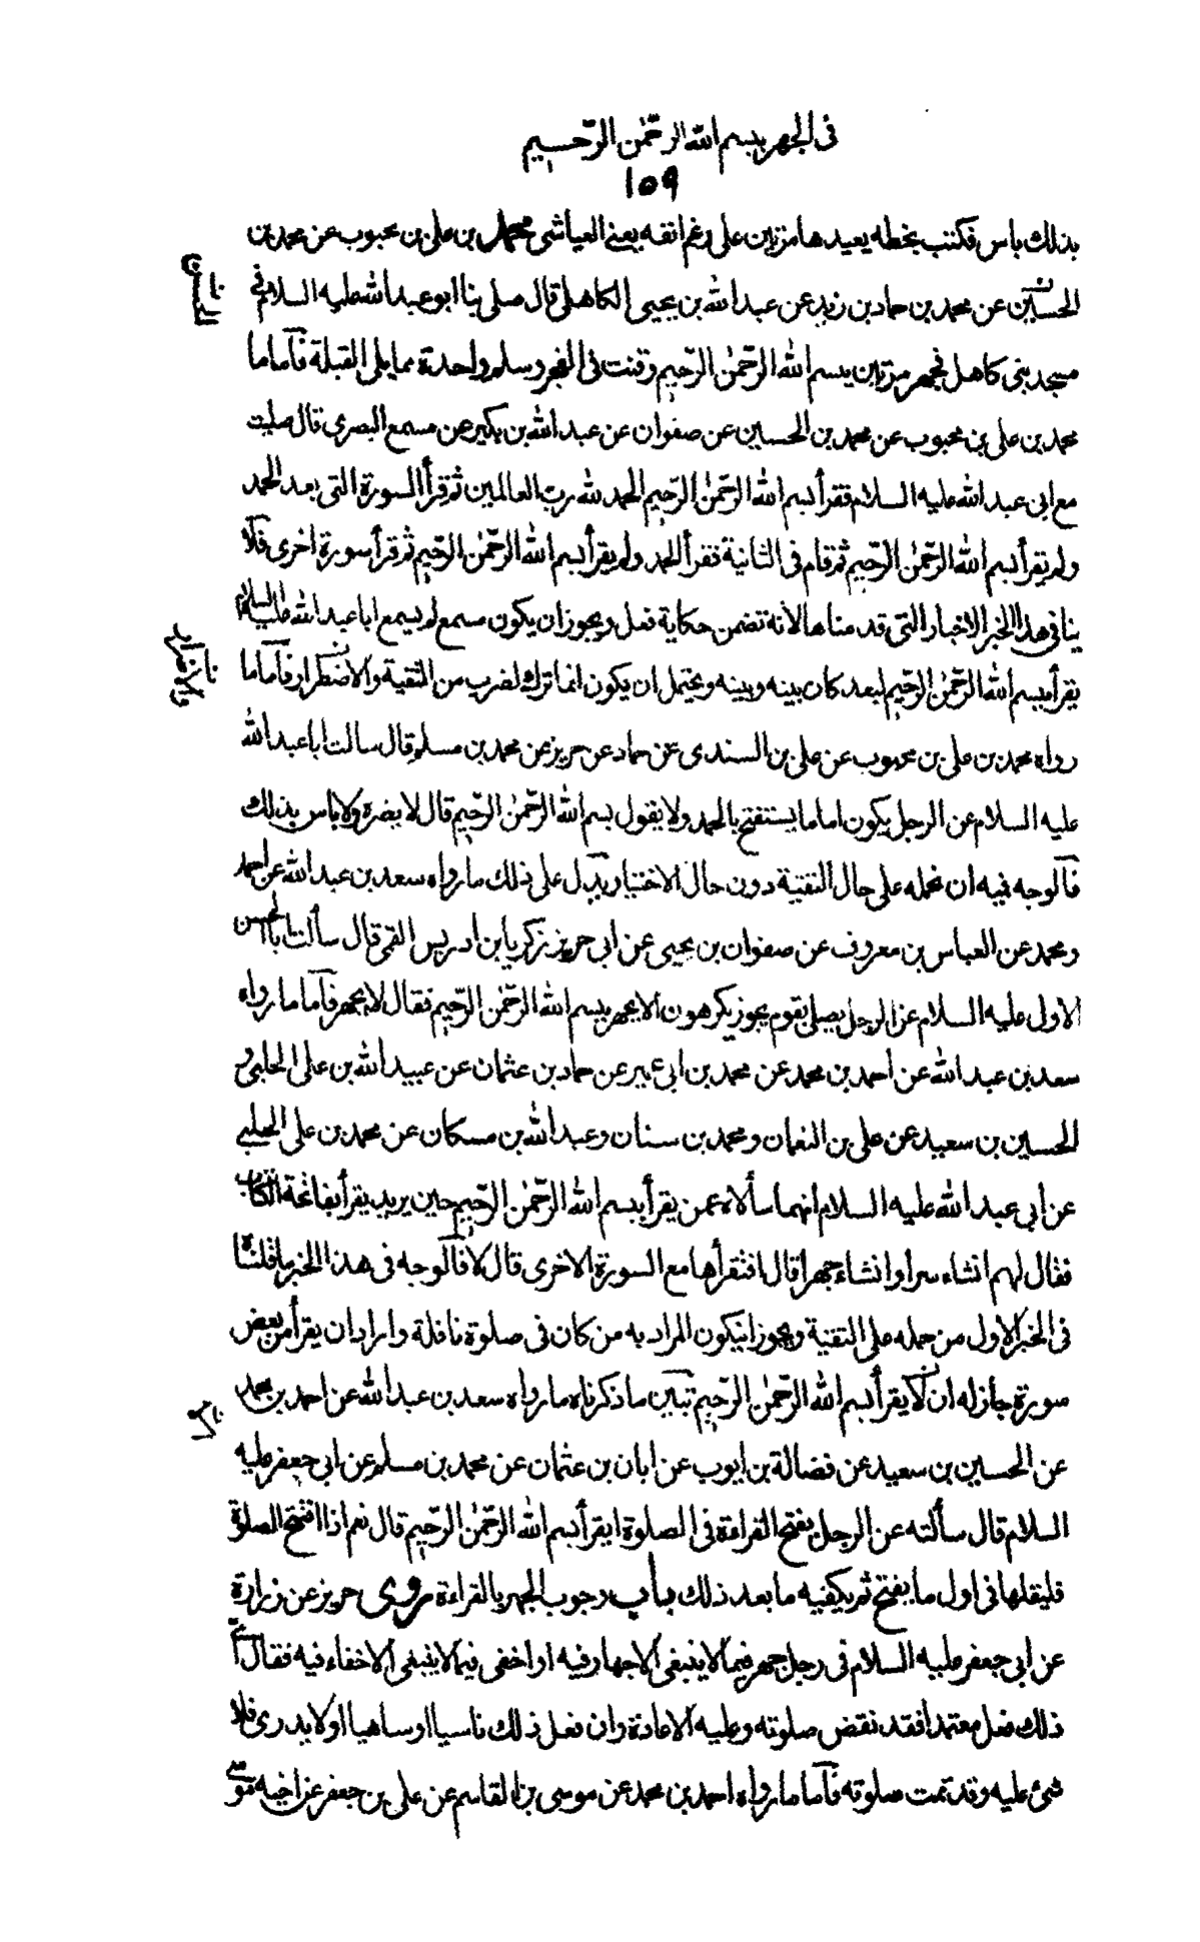 فى الجهر ببسم الله الرّحمٰن الرّحسيم
١٥٩
بذلك باس فكتب بخطه يعيدها مرتين على رغم انفه يعنى العياشى محمد بن على بن محبوب عن محمد بن
الحسين عن محمد بن حماد بن زيد عن عبد الله بن يحيى الكاهلى قال صلى بنا ابو عبد الله عليه السلام فى
مسجد بنى كاهل فجهر مرتين ببسم الله الرّحمٰن الرّحيم وقنت فى الفجر وسلم واحدة مما يلى القبلة فآماما
محمد بن على بن محبوب عن محمد بن الحسين عن صفوان عن عبد الله بن بكير عن مسمع البصرى قال صليت
مع ابى عبد الله عليه السلام فقرأ بسم الله الرّحمٰن الرّحيم الحمد لله ربّ العالمين ثم قرأ السورة التى بعد الحمد
ولم يقرأ بسم الله الرّحمٰن الرّحيم ثم قام فى الثانية فقرأ الحمد ولم يقرأ بسم الله الرّحمٰن الرّحيم ثم قرأ سورة اخرى فلا
ينافى هذا الخبر الاخبار التى قدمناها لأنه تضمن حكاية فعل ويجوز ان يكون مسمع لم يسمع ابا عبد الله عليه السلام
يقرأ ببسم الله الرّحمٰن الرّحيم لبعد كان بينه وبينه ويحتمل ان يكون انما ترك لضرب من التقية والاضطرار فآماما
رواه محمد بن على بن محبوب عن على بن السندى عن حماد عن حريز عن محمد بن مسلم قال سالت ابا عبد الله
عليه السلام عن الرجل يكون اماما يستفتح بالحمد ولا يقول بسم الله الرّحمٰن الرّحيم قال لا يضره ولا باس بذلك
فآلوجه فيه ان نحمله على حال التقية دون حال الاختيار ويدّل على ذلك ما رواه سعد بن عبد الله عن احمد
ومحمد عن العباس بن معروف عن صفوان بن يحيى عن ابى حريز زكريا بن ادريس القمى قال سألت ابا الحسن
الاول عليه السلام عن الرجل يصلى بقوم يجوز يكرهون الا يجهر ببسم الله الرّحمٰن الرّحيم فقال لا يجهر فآماما رواه
سعد بن عبد الله عن احمد بن محمد عن محمد بن ابى عمير عن حماد بن عثمان عن عبيد الله بن على الحلبى و
الحسين بن سعيد عن على بن النعمان ومحمد بن سنان وعبد الله بن مسكان عن محمد بن على الحلبى
عن أبى عبد الله عليه السلام انهما سألاه عمن يقرأ ببسم الله الرّحمٰن الرّحيم حين يريد يقرأ بفاتحة الكتاب
فقال لهم انشاء سرا وانشاء جهرا قال افنقرأها مع السورة الاخرى قال لا فآلوجه فى هذا الخبر ما قلناه
فى الخبر الاول من حمله على التقية ويجوز انيكون المراد به من كان فى صلوة نافلة واراد ان يقرأ من بعض
سورة جاز له ان لا يقرأ بسم الله الرّحمٰن الرّحيم تبّين ما ذكرناه ما رواه سعد بن عبد الله عن احمد بن محمد
عن الحسين بن سعيد عن فضالة بن ايوب عن ابان بن عثمان عن محمد بن مسلم عن ابى جعفر عليه
السلام قال سألته عن الرجل يفتح القراءة فى الصلوة ايقرأ بسم الله الرّحمٰن الرّحيم قال نعم اذا افتتح الصلوة
فليقلها فى اول ما يفتح ثم يكفيه ما بعد ذلك باب وجوب الجهر بالقراءة روى حريز عن زرارة
عن ابى جعفر عليه السلام فى رجل جهر فيما لا ينبغى الاجهار فيه او اخفى فيما لا ينبغى الاخفاء فيه فقال اىّ
ذلك فعل معتمدا فقد نقض صلوته وعليه الاعادة وان فعل ذلك ناسيا او ساهيا او لا يدرى فلا
شئ عليه وقد تمت صلوته فآماما رواه احمد بن محمد عن موسى بن القاسم عن على بن جعفر عن اخيه موسى